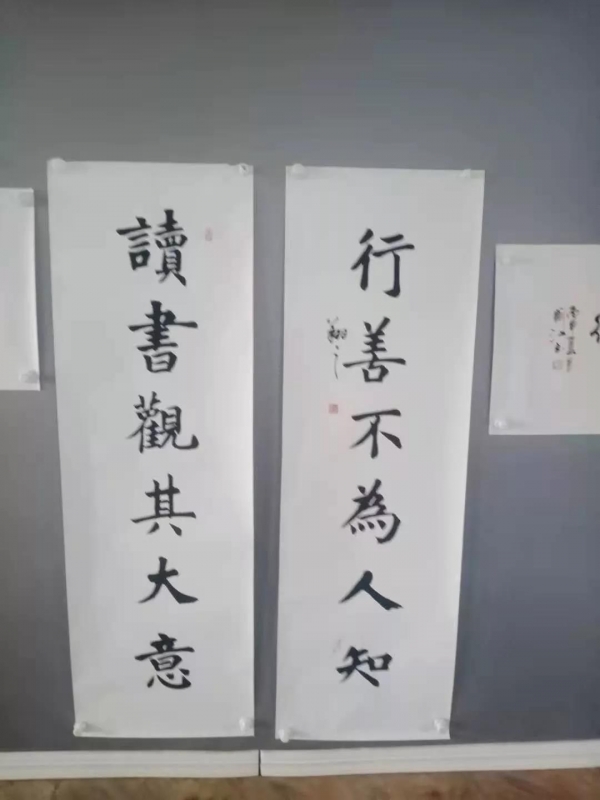 讀書觀其大意
行善不為人知